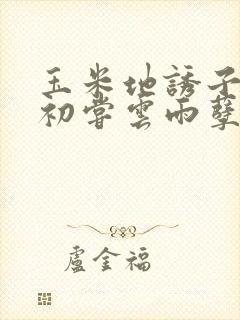 玉米地誘子
初嘗雲雨孽
盧金福